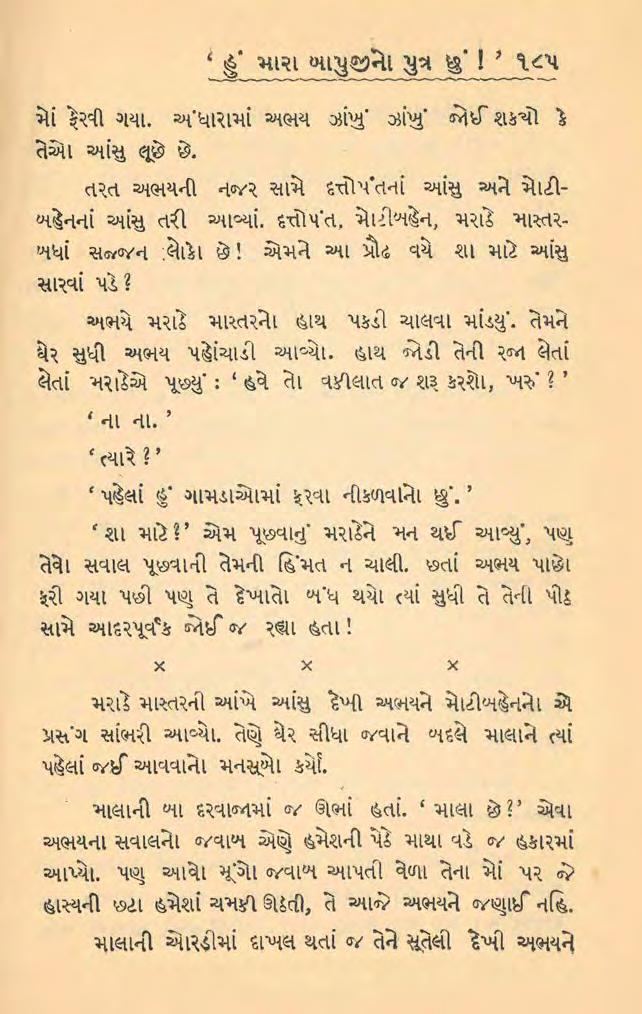 ‘ હું મારા બાપુજીનો પુત્ર છું ! ’ ૧૮૫
મોં ફેરવી ગયા. અંધારામાં અભય ઝાંખું ઝાંખું જોઈ શક્યો કે
તેઓ આંસુ લૂછે છે.
તરત અભયની નજર સામે દત્તોપંતનાં આંસુ અને મોટી-
બહેનનાં આંસુ તરી આવ્યાં. દત્તોપંત, મોટીબહેન, મરાઠે માસ્તર-
બધાં સજ્જન લોકો છે! એમને આ પ્રૌઢ વયે શા માટે આંસુ
સારવાં પડે?
અભયે મરાઠે માસ્તરનો હાથ પકડી ચાલવા માંડ્યું. તેમને
ઘેર સુધી અભય પહોંચાડી આવ્યો. હાથ જોડી તેની રજા લેતાં
લેતાં મરાઠેએ પૂછ્યું : ‘ હવે તો વકીલાત જ શરૂ કરશો, ખરું ? ’
‘ ના ના. ’
‘ ત્યારે ? ’
‘ પહેલાં હું ગામડાઓમાં ફરવા નીકળવાનો છું. ’
‘ શા માટે? ’ એમ પૂછવાનું મરાઠેને મન થઈ આવ્યું, પણ
તેવો સવાલ પૂછવાની તેમની હિંમત ન ચાલી. છતાં અભય પાછો
ફરી ગયા પછી પણ તે દેખાતો બંધ થયો ત્યાં સુધી તે તેની પીઠ
સામે આદરપૂર્વક જોઈ જ રહ્યા હતા!
× × ×
મરાઠે માસ્તરની આંખે આંસુ દેખી અભયને મોટીબહેનનો એ
પ્રસંગ સાંભરી આવ્યો. તેણે ઘેર સીધા જવાને બદલે માલાને ત્યાં
પહેલાં જઈ આવવાનો મનસૂબો કર્યો.
માલાની બા દરવાજામાં જ ઊભાં હતાં. ‘ માલા છે? ’ એવા
અભયના સવાલનો જવાબ એણે હમેશની પેઠે માથા વડે જ હકારમાં
આપ્યો. પણ આવો મૂંગો જવાબ આપતી વેળા તેના મોં પર જે
હાસ્યની છટા હમેશાં ચમકી ઊઠતી, તે આજે અભયને જણાઈ નહિ.
માલાની ઓરડીમાં દાખલ થતાં જ તેને સૂતેલી દેખી અભયને